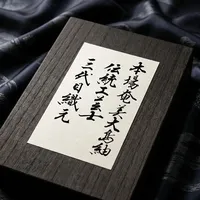 本場奄美大島紬
伝統工芸
三代目織元